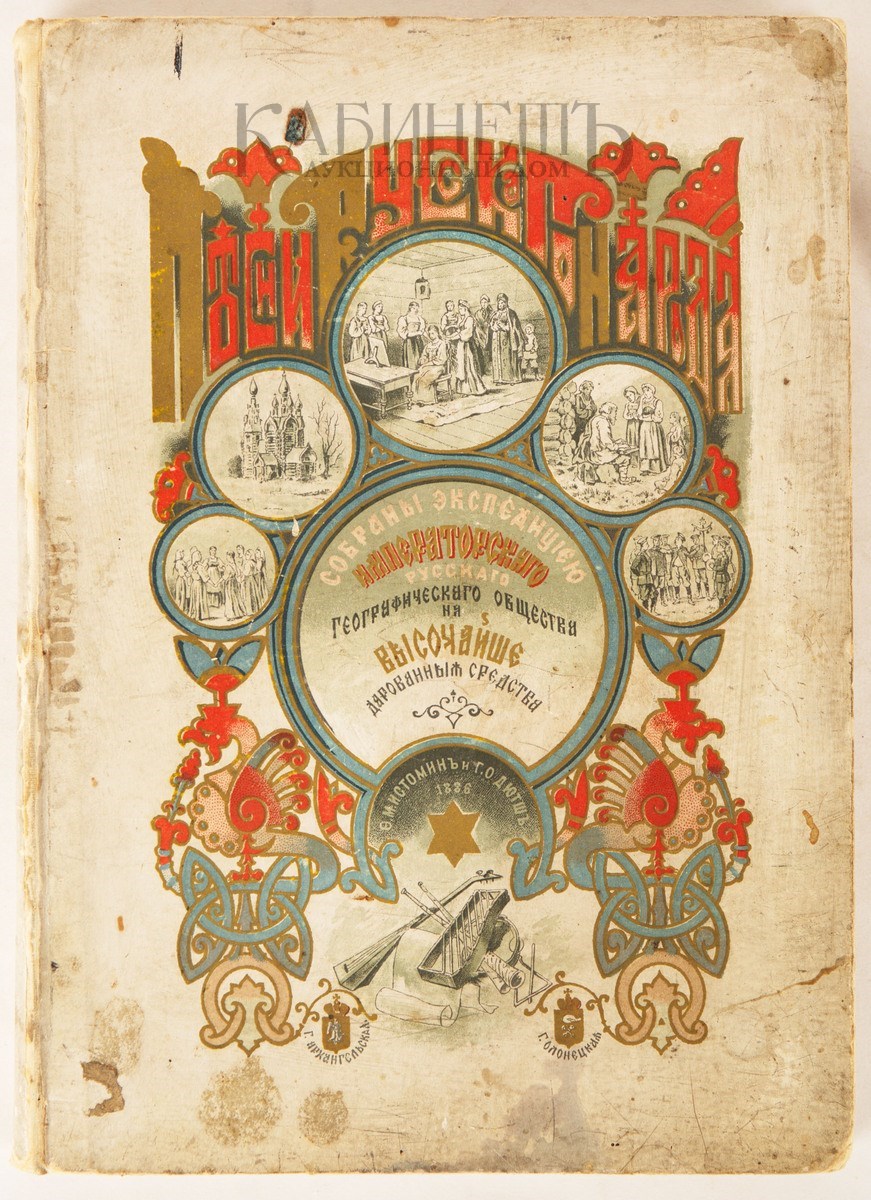 КАБИНЕТЪ
АУКЦИОННЫЙ ДОМ
ПѢСНИ РУСКАГО НАРОДА
СОБРАНЫ ЭКСПЕДИЦІЕЮ
ИМПЕРАТОРСКАГО
РУССКАГО
ГЕОГРАФИЧЕСКАГО ОБЩЕСТВА
НА
ВЫСОЧАЙШЕ
ДАРОВАННЫЯ СРЕДСТВА
Ѳ.М.ИСТОМИНЪ И Г.О.ДЮТШЪ
1886
Г. АРХАНГЕЛЬСКАЯ
Г. ОЛОНЕЦКАЯ